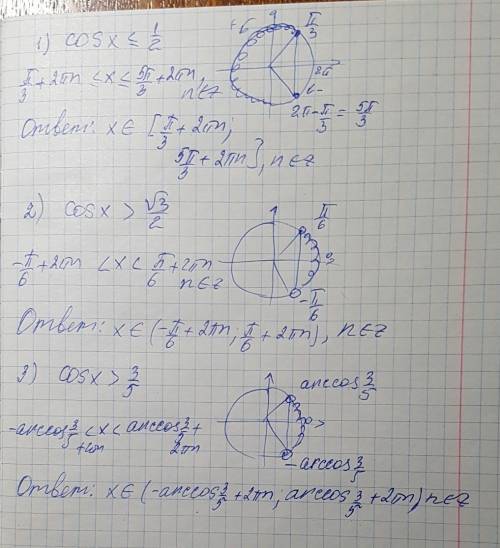 1) cosx ≤ 1/2
π/3
π/3 + 2πn ≤ x ≤ 5π/3 + 2πn, n∈z
2π - π/3 = 5π/3
Ответ: x ∈ [π/3 + 2πn;
5π/3 + 2πn], n∈z
2) cosx > √3/2
π/6
-π/6 + 2πn < x < π/6 + 2πn
n∈z
-π/6
Ответ: x∈(-π/6 + 2πn; π/6 + 2πn), n∈z
3) cosx > 3/5
arccos 3/5
-arccos 3/5 + 2πn < x < arccos 3/5 + 2πn
-arccos 3/5
Ответ: x∈(-arccos 3/5 + 2πn; arccos 3/5 + 2πn) n∈z